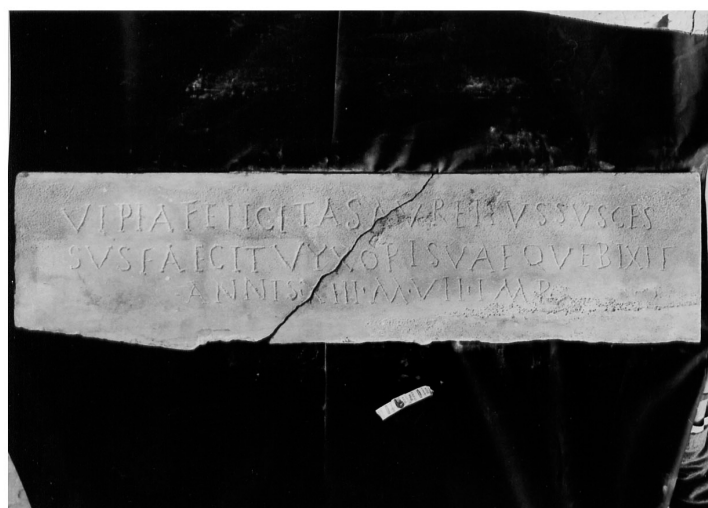 VLPIA FELICITAS AVRELIVS SVSCES
SVS FAECIT VYXORI SVAE QVE BIXIT
ANNIS XIII M VII IM P